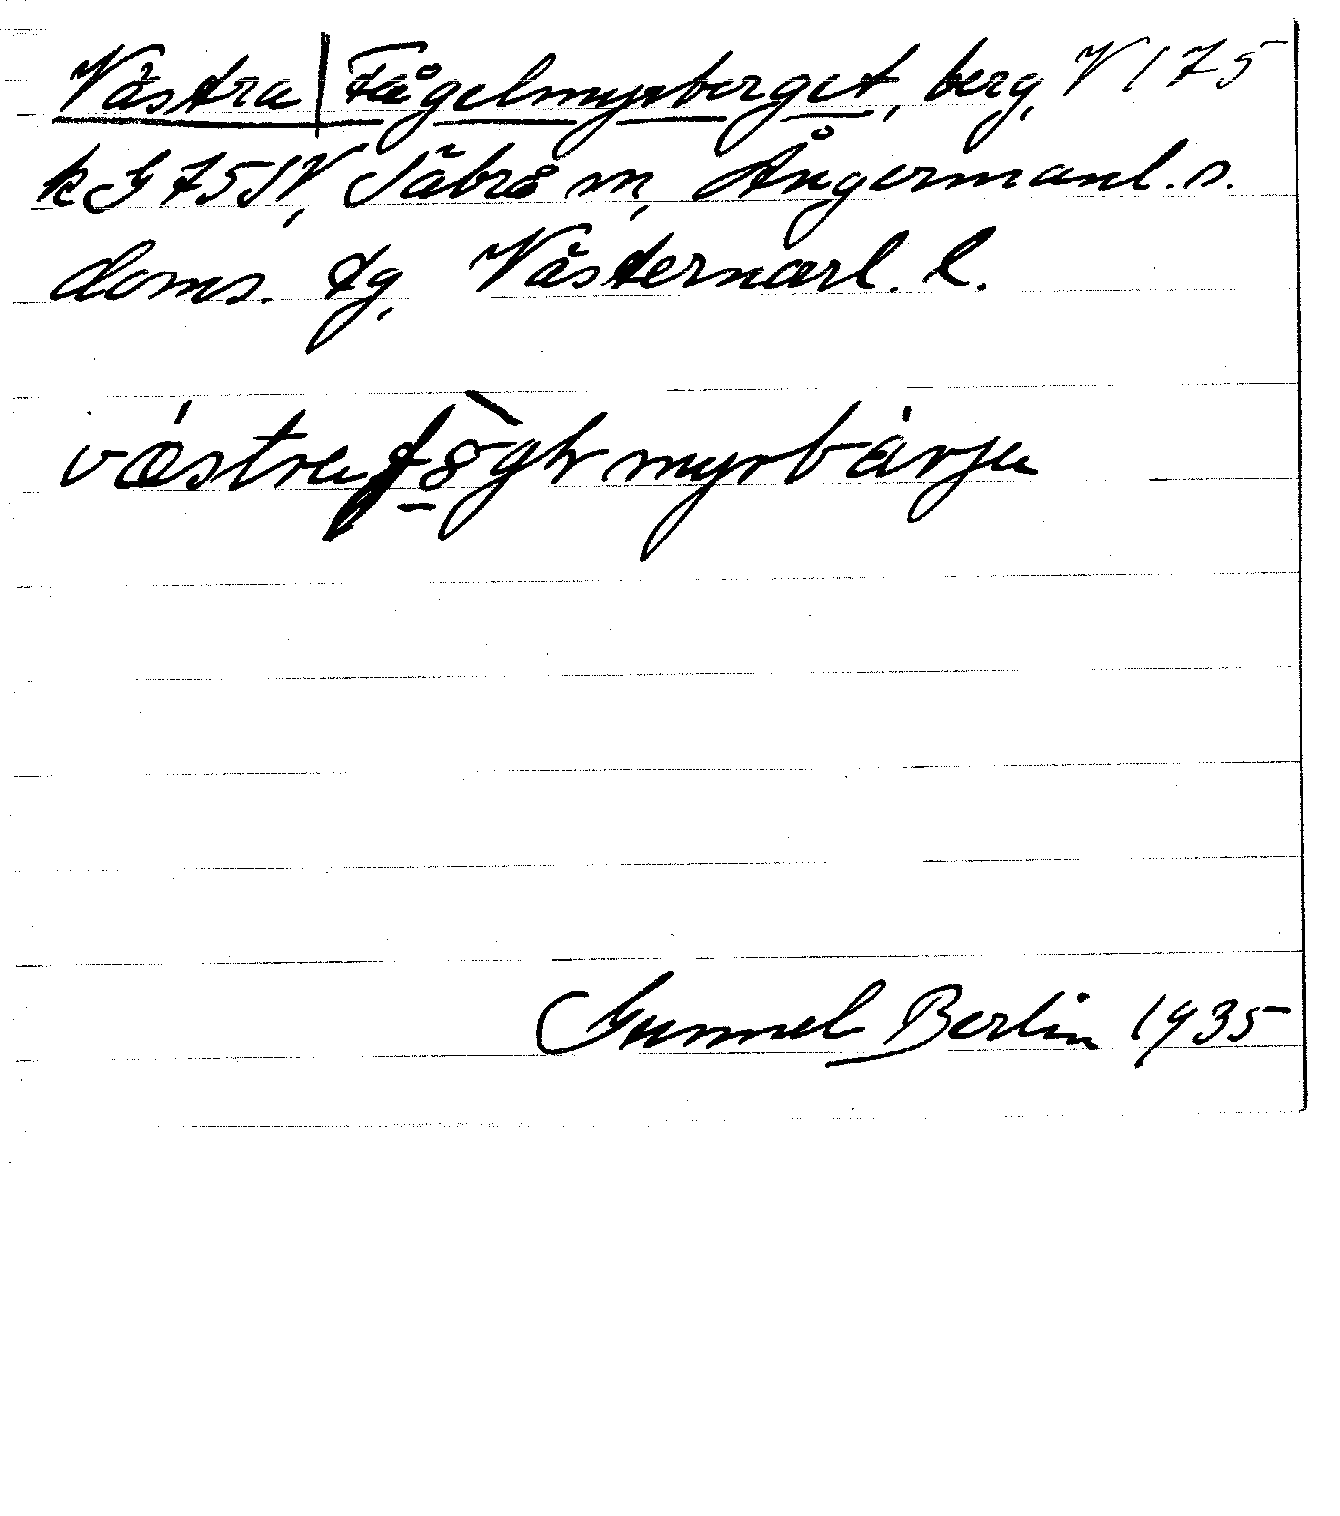 Västra | Fågelmyrberget, berg, V 175
k G 75 SV, Säbrå sn, Ångermanl. s.
doms. tg, Västernorl. l.
västra fögḷmyrbärja
Gunnel Berlin 1935